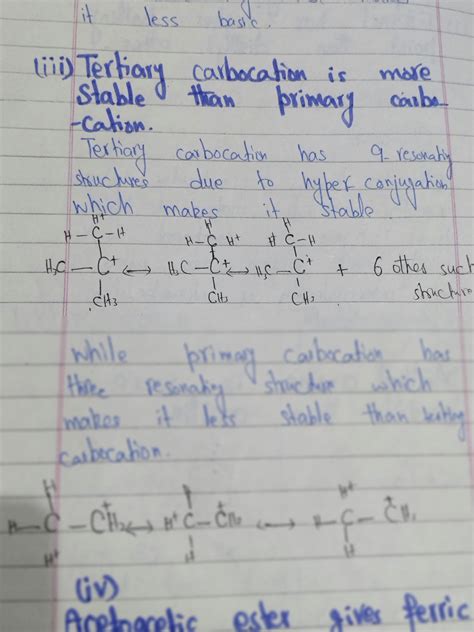 it less basic.
(iii) Tertiary carbocation is more
stable than primary carbo
-cation.
Tertiary carbocation has 9 resonating
structures due to hyper conjugation
which makes it stable.
H⁺ H H
H – C – H H – C H⁺ H⁺ C – H
H₃C – C⁺ ↔ H₃C – C⁺ ↔ H₃C – C⁺ + 6 other such
CH₃ CH₃ CH₃ structure
while primary carbocation has
three resonating structure which
makes it less stable than
carbocation.
H H H⁺
H – C – CH₂ ↔ H⁺ C – CH₂ ↔ H – C – CH₂
H⁺ H H
(iv)
Acetoacetic ester gives ferric